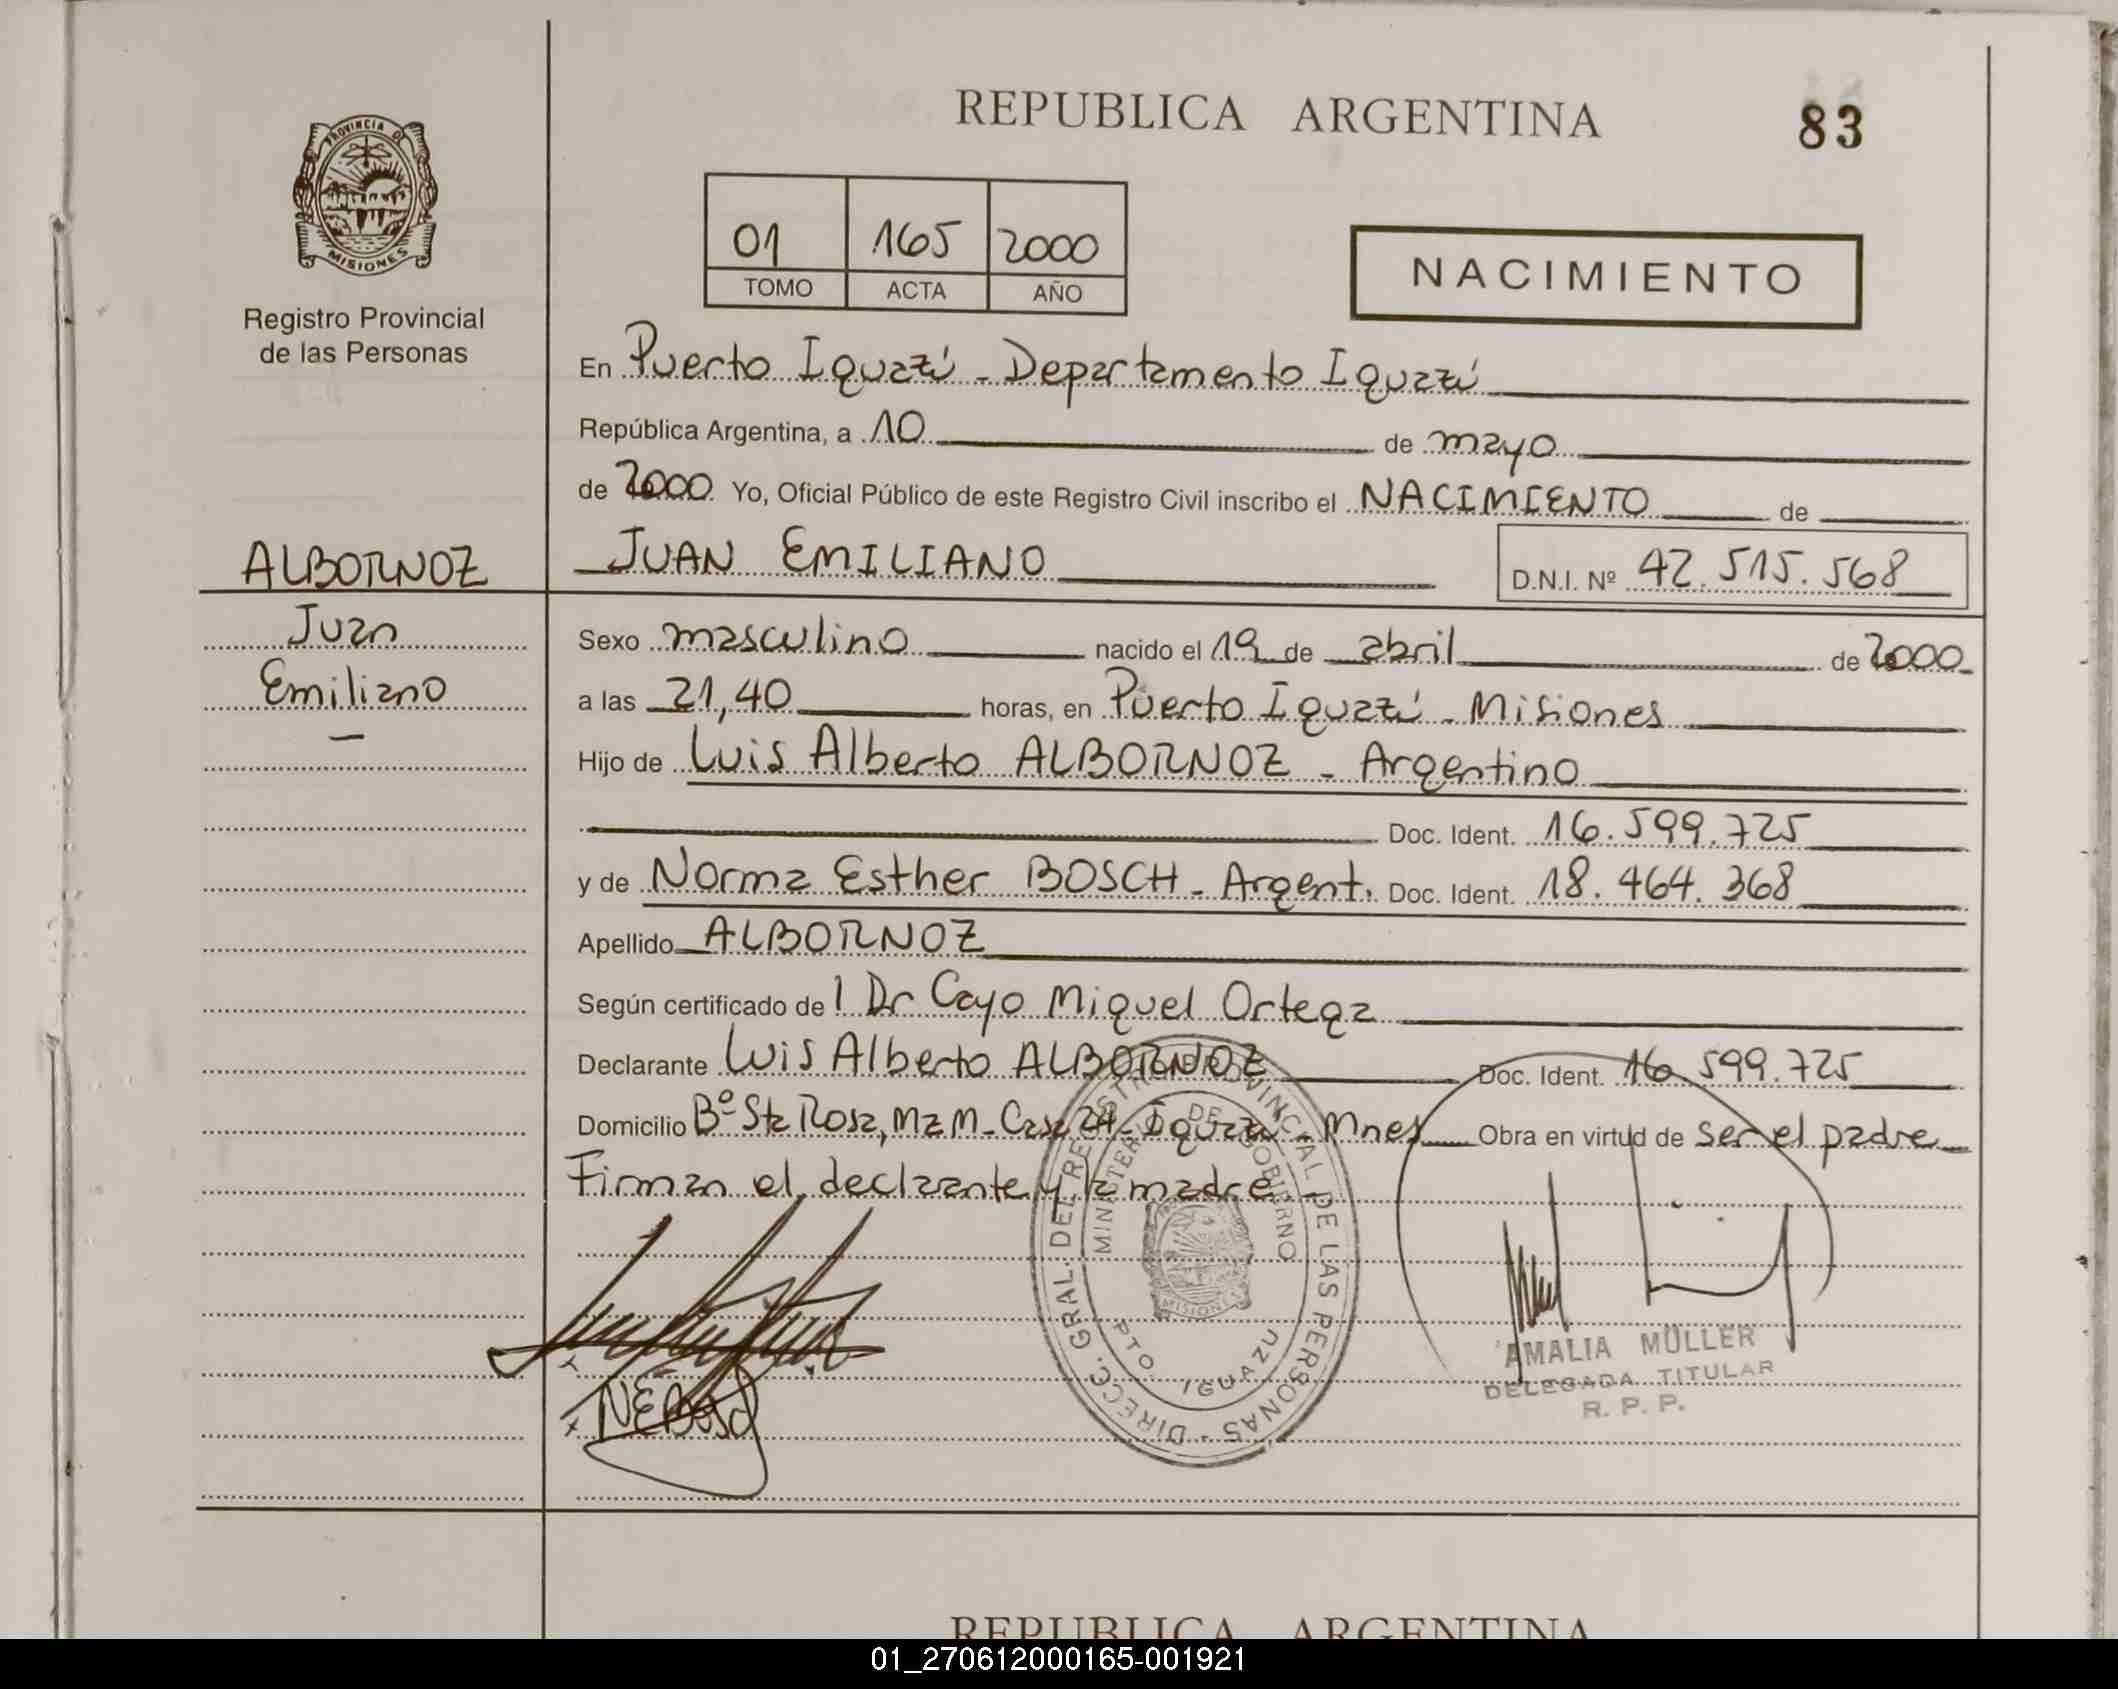 REPUBLICA ARGENTINA
83
PROVINCIA DE
MISIONES
Registro Provincial
de las Personas
01 165 2000
TOMO ACTA AÑO
NACIMIENTO
En Puerto Iguazú - Departamento Iguazú
República Argentina, a 10 de mayo
de 2000 Yo, Oficial Público de este Registro Civil inscribo el NACIMIENTO de
ALBORNOZ
JUAN EMILIANO
D.N.I. Nº 42.515.568
Juan
Emiliano
Sexo masculino nacido el 19 de abril de 2000
a las 21,40 horas, en Puerto Iguazú - Misiones
Hijo de Luis Alberto ALBORNOZ - Argentino
Doc. Ident. 16.599.725
y de Norma Esther BOSCH - Argent. Doc. Ident. 18.464.368
Apellido ALBORNOZ
Según certificado de l Dr Cayo Miguel Ortega
Declarante Luis Alberto ALBORNOZ Doc. Ident. 16.599.725
Domicilio Bº Sta Rosa, Mz M - Casa 24 - Iguazú - Mnes Obra en virtud de ser el padre
Firman el declarante y la madre
DIRECC. GRAL. DEL REGISTRO PROVINCIAL DE LAS PERSONAS -
MINISTERIO DE GOBIERNO
MISIONES
PTO. IGUAZU
NEBosch
AMALIA MÜLLER
DELEGADA TITULAR
R. P. P.
REPUBLICA ARGENTINA
01_270612000165-001921